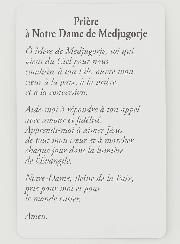 Prière
à Notre Dame de Medjugorje
Ô Mère de Medjugorje, toi qui
viens du Ciel pour nous
conduire à ton Fils, ouvre mon
cœur à la paix, à la prière
et à la conversion.
Aide-moi à répondre à ton appel
avec amour et fidélité.
Apprends-moi à aimer Jésus
de tout mon cœur et à marcher
chaque jour dans la lumière
de l'Évangile.
Notre-Dame, Reine de la Paix,
prie pour moi et pour
le monde entier.
Amen.